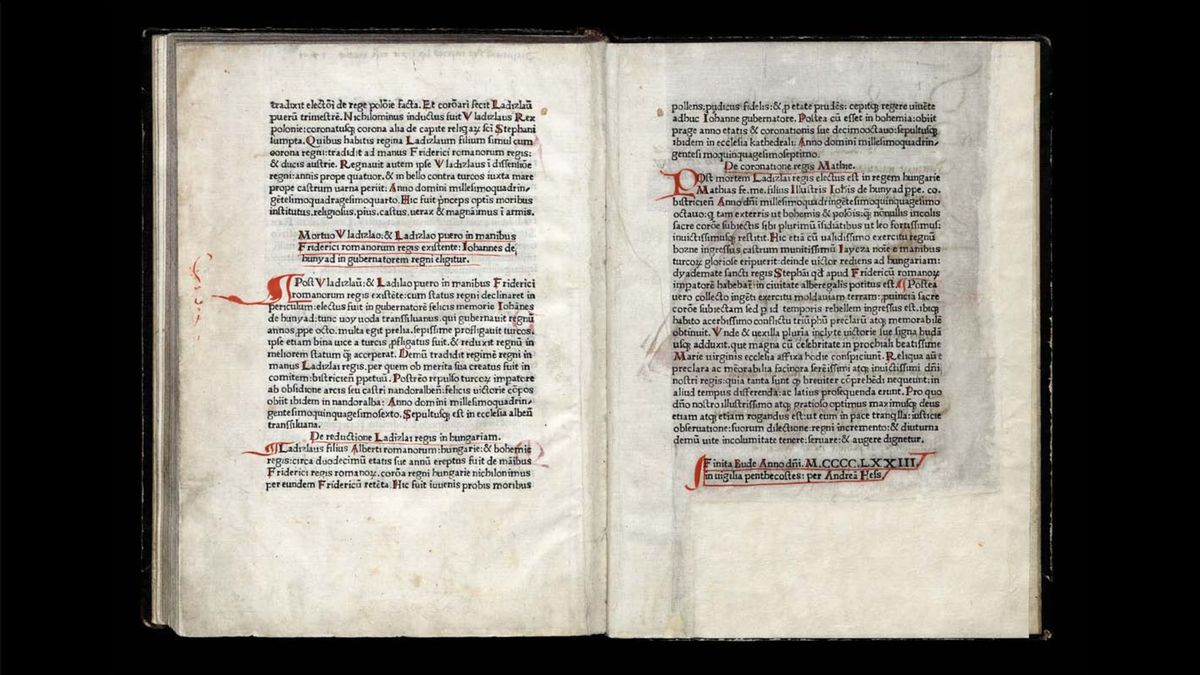 traduxit electoῖ de rege polōie facta. Et corōari fecit Ladizlaū
puerū trimestrē. Nichilominus inductus suit Vladizlaus Rex
polonie: coronatusq; corona alia de capite reliqaꝝ sci Stephani
sumpta. Quibus habitis regina Ladizlaum filium simul cum
corona regni: tradidit ad manus Friderici romanorum regis:
& ducis austrie. Regnauit autem ipse Vladizlaus ῑ dissensiōe
regni: annis prope quatuor. & in bello contra turcos iuxta mare
prope castrum uarna periit: Anno domini millesimoquadrin⸗
gētesimoquadragesimoquarto. Hic fuit p̄nceps optis moribus
institutus. religiosus. pius. castus. uerax & magnāimus ῑ armis.
Mortuo Vladizlao: & Ladizlao puero in manibus
Friderici romanorum regis existente: Iohannes de
hunyad in gubernatorem regni eligitur.
Post Vladizlaū: & Ladilao puero in manibus Friderici
romanorum regis existēte: cum status regni declinaret in
periculum: electus fuit in gubernatorē felicis memorie Iohānes
de hunyad: tunc uoyuoda transsiluanus. qui gubernauit regnū
annos. ppe octo. multa egit prelia. sepissime profligauit turcos.
ipse etiam bina uice a turcis. p̱fligatus fuit. & reduxit regnū in
meliorem statum q̄ acceperat. Demū tradidit regimē regni in
manus Ladizlai regis. per quem ob merita sua creatus fuit in
comitem: bistricieñ ppetuū. Postrēo repulso turcoꝝ impatore
ab obsidione arcis seu castri nandoralbeñ: felicis uictorie cōpos
obiit ibidem in nandoralba: Anno domini millesimoquadrin⸗
gentesimoquinquagesimosexto. Sepultusq; est in ecclesia albeñ
transsiluana.
De reductione Ladizlai regis in hungariam.
Ladizlaus filius Alberti romanorum: hungarie: & bohemie
regis: circa duodecimū etatis sue annū ereptus fuit de māibus
Friderici regis romanoꝝ. corōa regni hungarie nichilonimus
per eundem Fridericū retēta. Hic fuit iuuenis probis moribus
pollens. pudicus fidelis: &. p etate prudēs: cepitq; regere uiuēte
adhuc Iohanne gubernatore. Postea cū esset in bohemia: obiit
prage anno etatis & coronationis sue decimooctauo: sepultusq;
ibidem in ecclesia kathedrali: Anno domini millesimoquadrin⸗
gentesimoquinquagesimoseptimo.
De coronatione regis Mathie.
Post mortem Ladizlai regis electus est in regem hungarie
Mathias fe. me. filius Illustris Iohis de hunyad ppe. co.
bistricieñ. Anno dn̄i millesimoquadringētesimoquinquagesimo
octauo: q tam exterris ut bohemis & polōis: q̄ nōnullis incolis
sacre corōe subiectis sibi plurimū ῑsidiatibus ut leo fortissimus:
inuictissimusq; restitit. Hic etiā cū ualidissimo exercitu regnū
bozne ingressus castrum munitissimū Iaycza noῑe e manibus
turcoꝝ gloriose eripuerit: deinde uictor rediens ad hungariam:
dyademate sancti regis Stephāi qd apud Fridericū romanoꝝ
impatorē habebat̄: in ciuitate alberegalis potitus est. Postea
uero collecto ingēti exercitu moldauiam terram: puinciā sacre
corōe subiectam sed p id temporis rebellem ingressus est. ibiq;
habito acerbissimo conflictu triūphū preclarū atq; memorabilē
obtinuit. Vnde & uexilla pluria inclyte uictorie sue signa budā
usq; adduxit. que magna cū celebritate in prochiali beatissime
Marie uirginis ecclesia affixa hodie conspiciunt̄. Reliqua aūte
preclara ac mēorabilia facinora serēissimi atq; inuictissimi dn̄i
nostri regis: quia tanta sunt q breuiter cōprehēdi nequeunt: in
aliud tempus differenda: ac latius prosequenda erunt. Pro quo
dn̄o nostro illustrissimo atq; gratioso optimus maximusq; deus
etiam atq; etiam rogandus est: ut eum in pace tranq̄lla: iusticie
obseruatione: suorum dilectione: regni incremento: & diuturna
demū uite incolumitate tenere: seruare: & augere dignetur.
Finita Bude Anno dn̄i. M.CCCC.LXXIII
in uigilia penthecostes: per Andreā Hess.